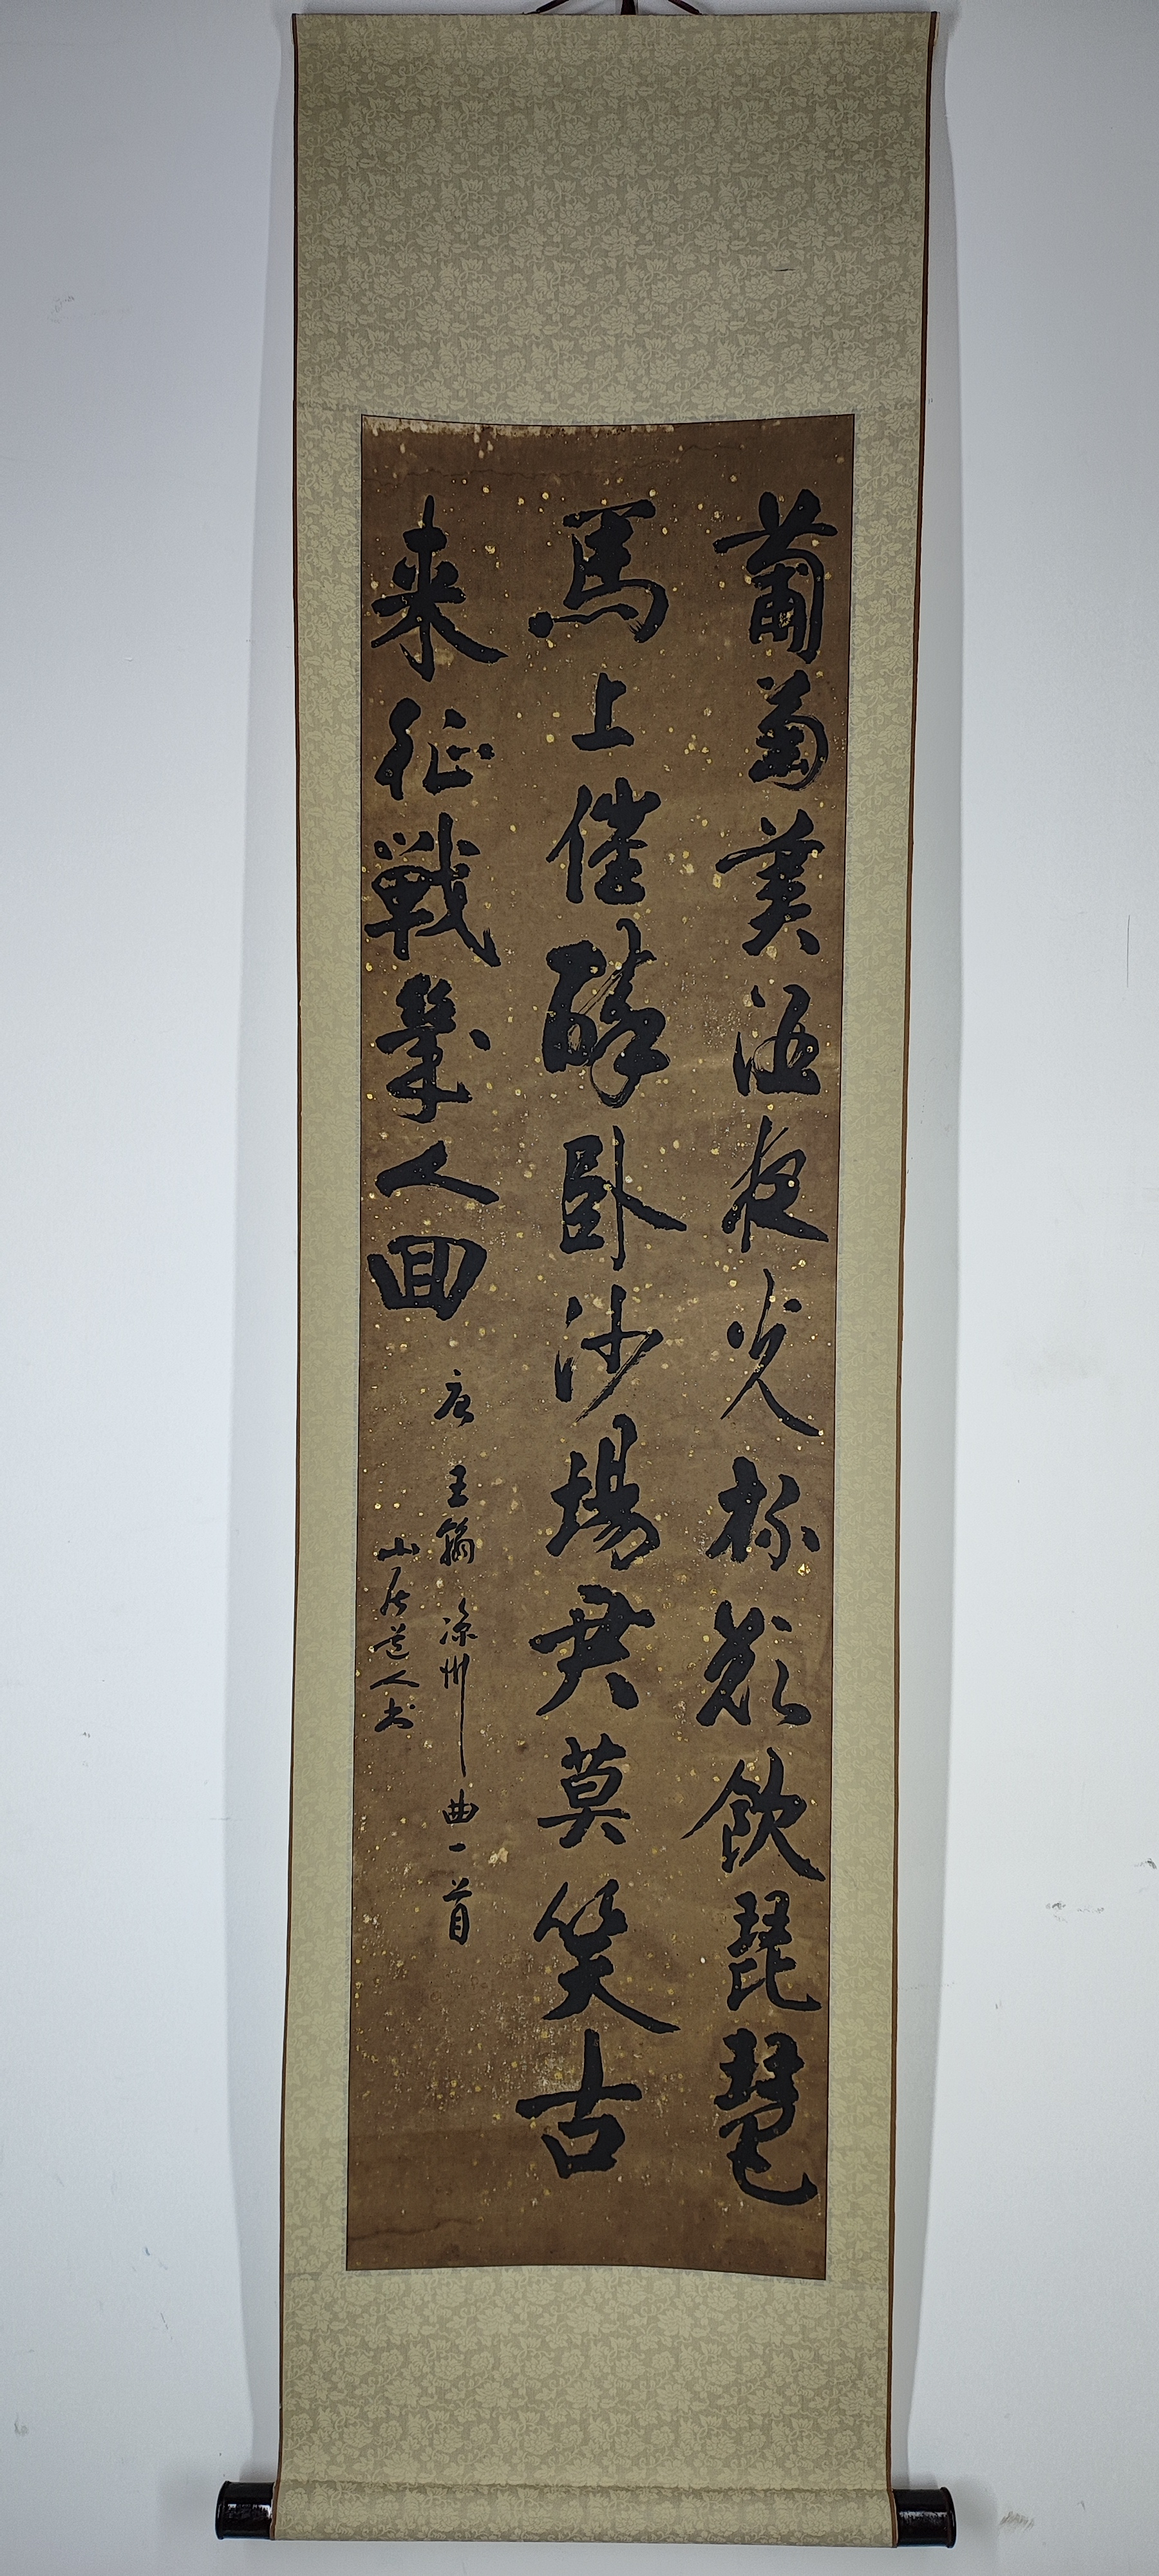 葡萄美酒夜光杯欲飲琵琶
馬上催醉臥沙場君莫笑古
来征戰幾人回
唐 王翰 凉州曲一首
山居道人书